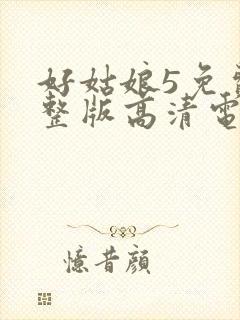 好姑娘5免
整版高清電
憶昔顏